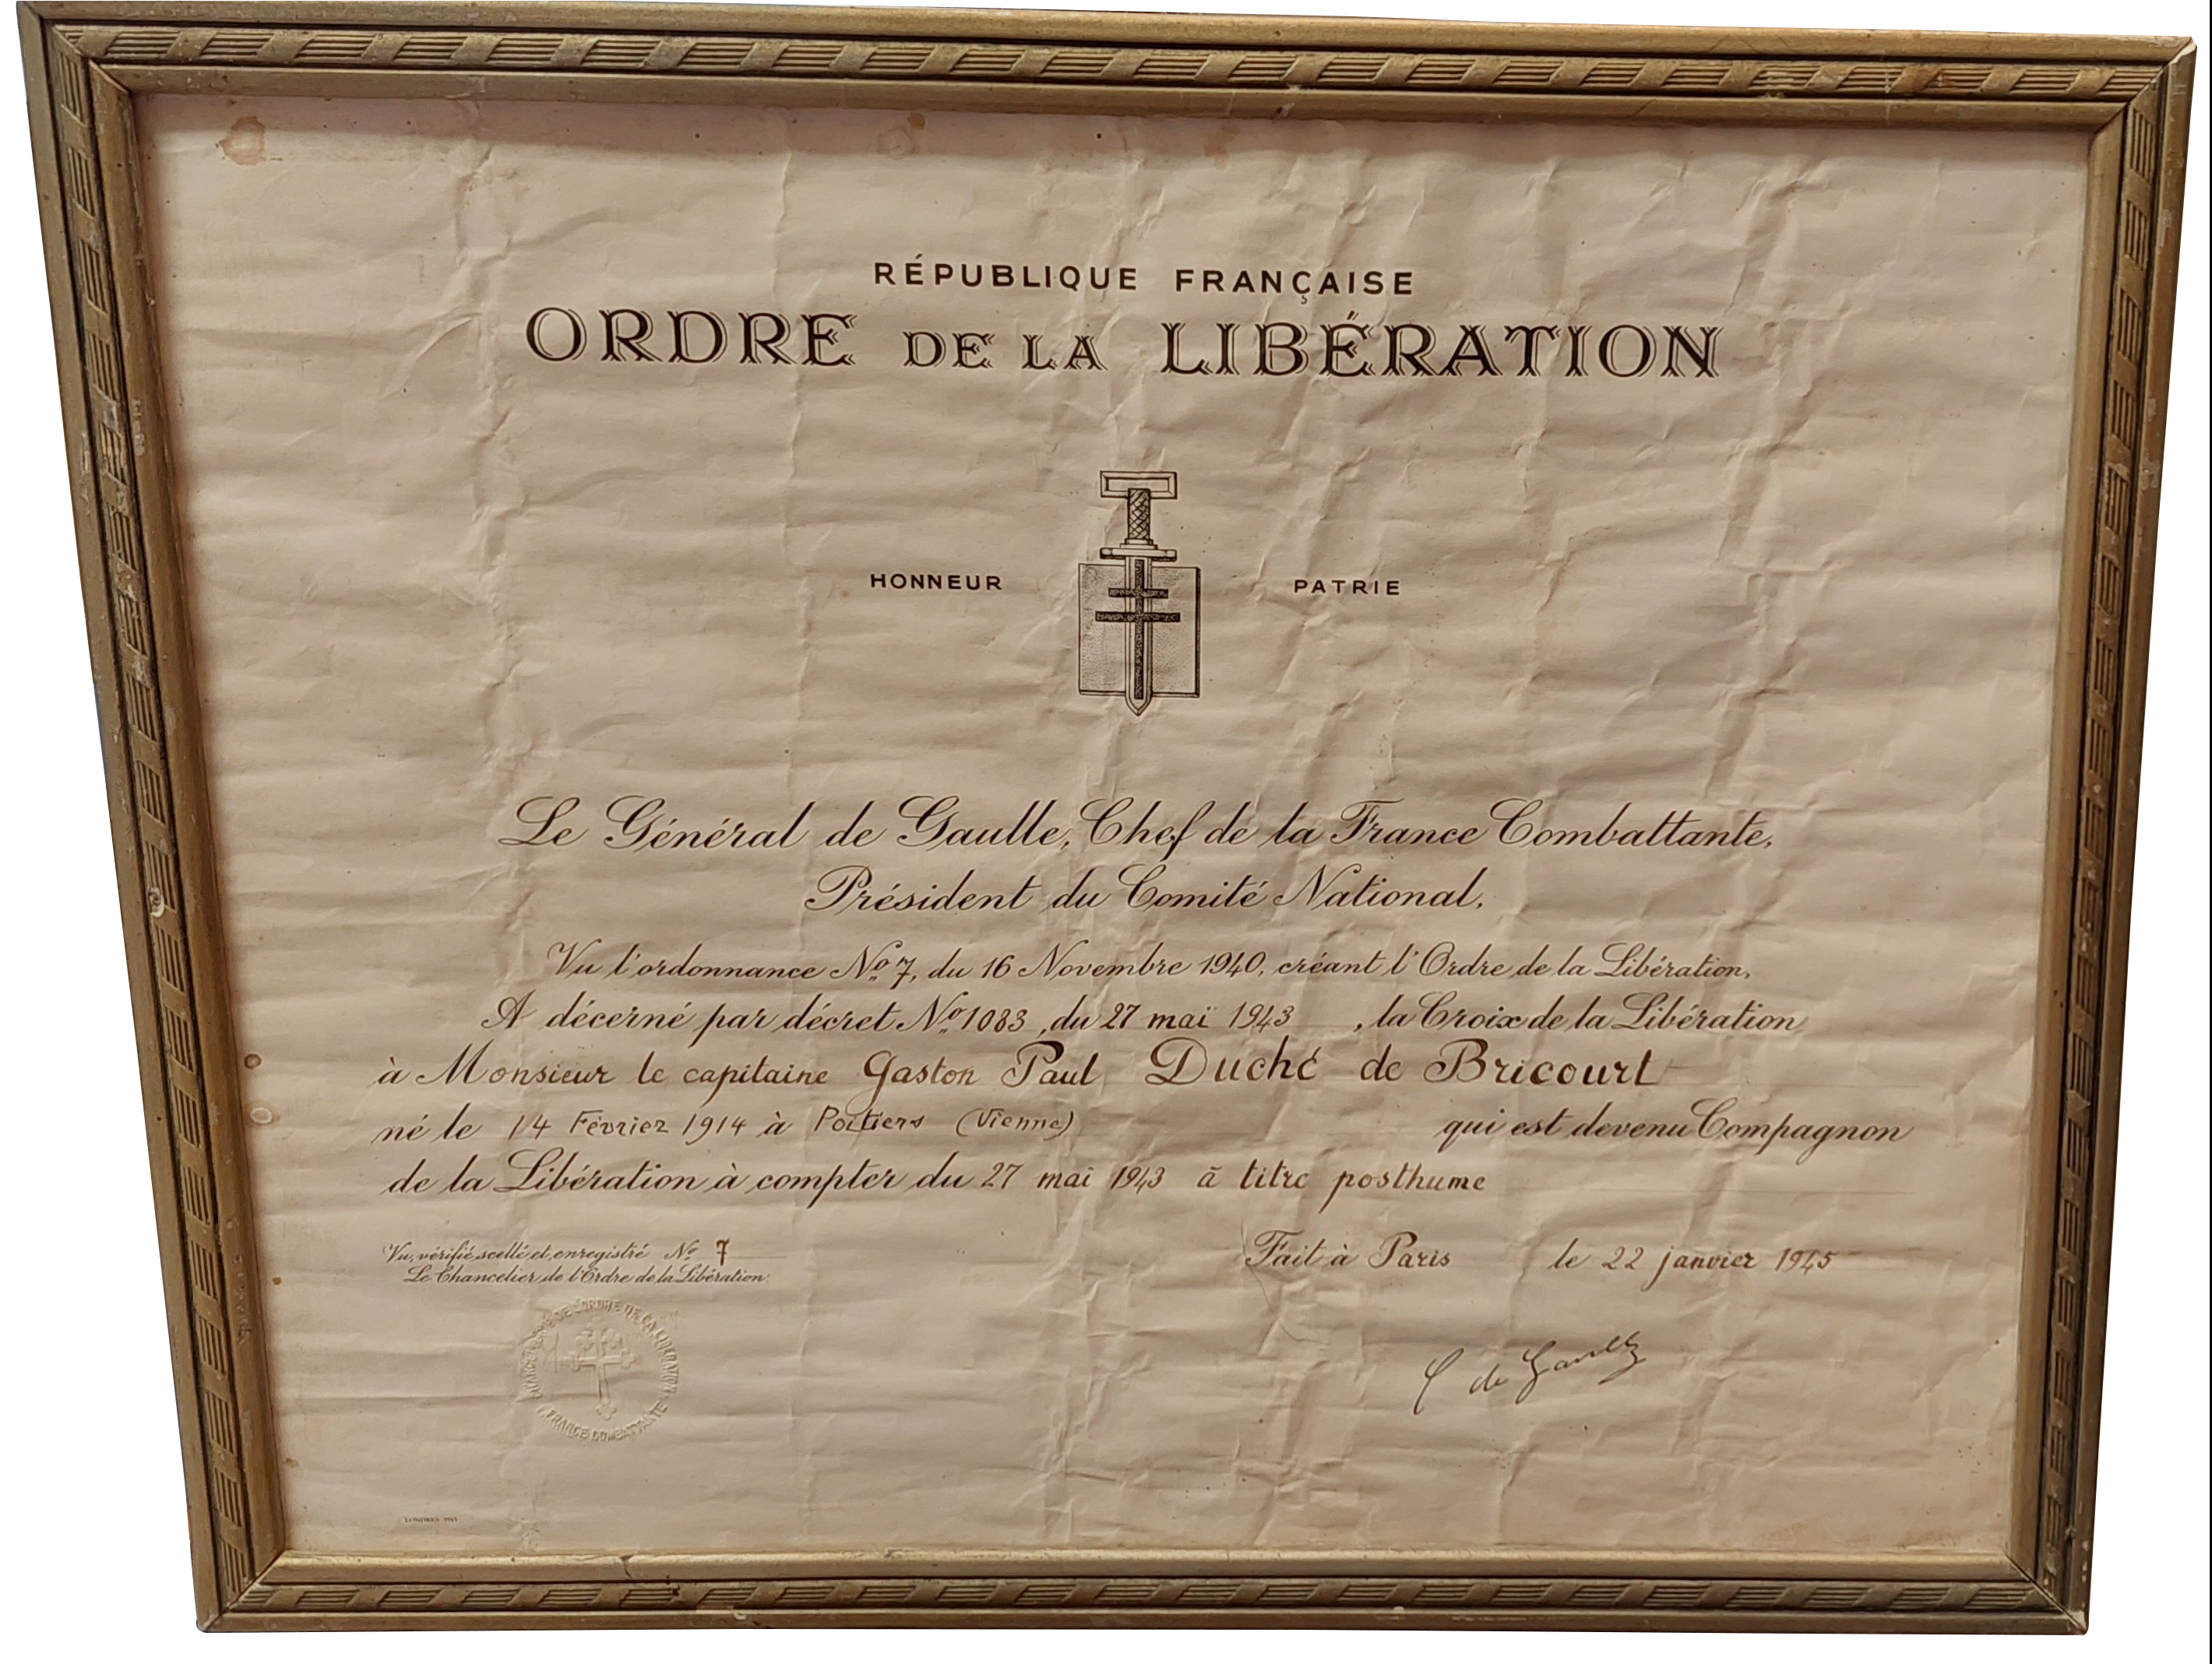 RÉPUBLIQUE FRANÇAISE
ORDRE DE LA LIBÉRATION
HONNEUR PATRIE
Le Général de Gaulle, Chef de la France Combattante,
Président du Comité National,
Vu l'ordonnance No 7, du 16 Novembre 1940, créant l'Ordre de la Libération,
A décerné par décret No 1083, du 27 mai 1943, la Croix de la Libération
à Monsieur le capitaine Gaston Paul Duché de Bricourt
né le 14 Février 1914 à Poitiers (Vienne) qui est devenu Compagnon
de la Libération à compter du 27 mai 1943 à titre posthume
Vu, vérifié, scellé et enregistré No 7
Le Chancelier de l'Ordre de la Libération.
Fait à Paris le 22 janvier 1945
C de Gaulle
CHANCELLERIE DE L'ORDRE DE LA LIBÉRATION
FRANCE COMBATTANTE
LONDRES